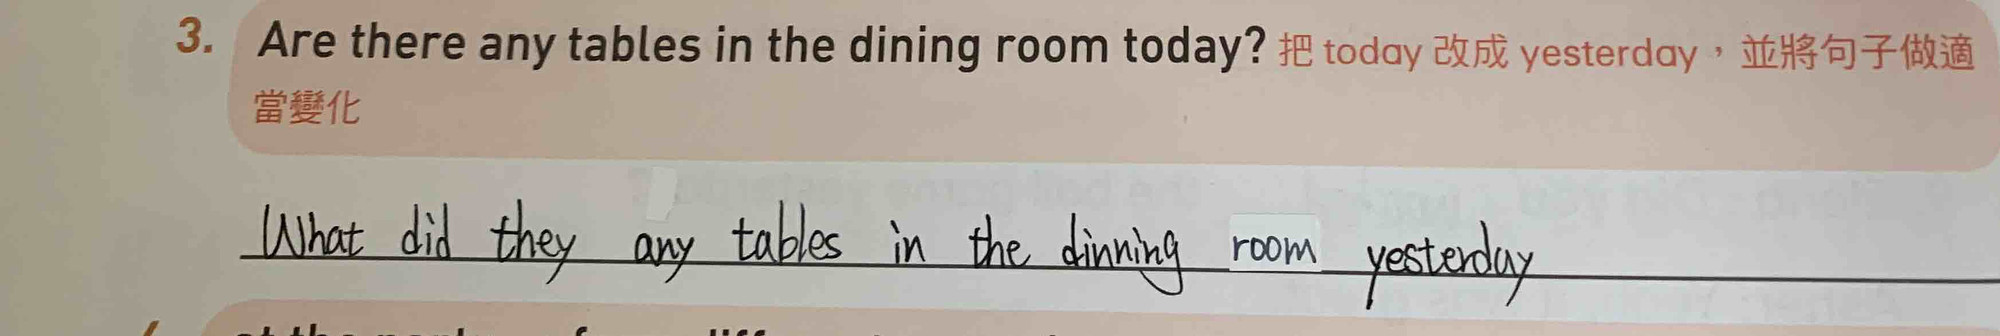 3. Are there any tables in the dining room today? 把 today 改成 yesterday，並將句子做適
當變化
What did they any tables in the dinning room yesterday